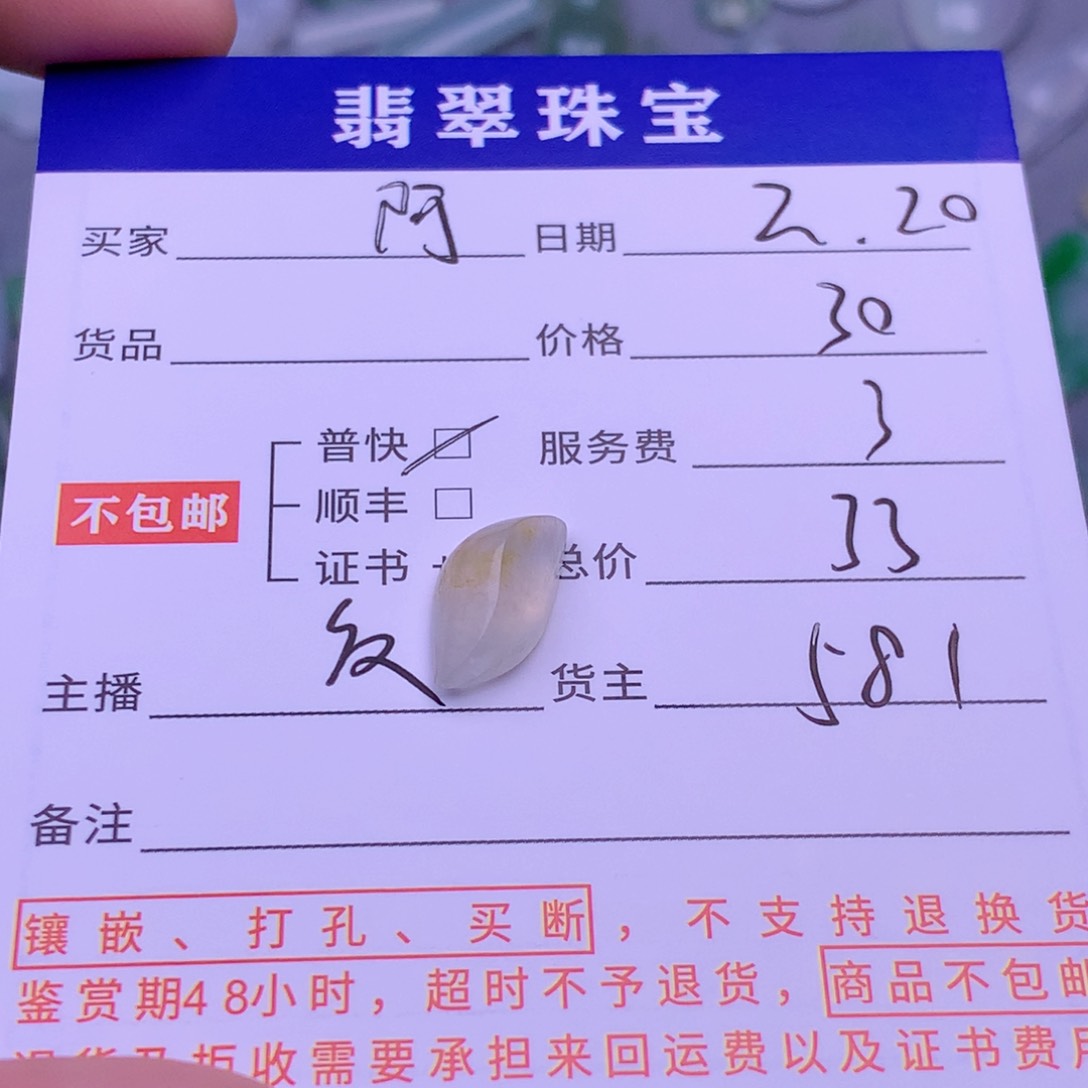 翡翠珠宝
买家 阿 日期 2.20
货品 价格 30
普快 服务费 3
不包邮 顺丰
证书 总价 33
主播 货主 581
备注
镶嵌、打孔、买断，不支持退换货
鉴赏期48小时，超时不予退货，商品不包邮
退货及拒收需要承担来回运费以及证书费用